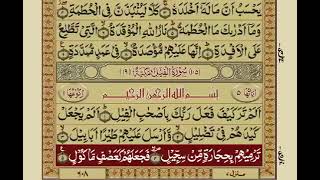 يَحْسَبُ أَنَّ مَالَهُ أَخْلَدَهُ كَلَّا لَيُنْبَذَنَّ فِي الْحُطَمَةِ
وَمَا أَدْرٰىكَ مَا الْحُطَمَةُ نَارُ اللّٰهِ الْمُوْقَدَةُ الَّتِيْ تَطَّلِعُ
عَلَى الْأَفْئِدَةِ إِنَّهَا عَلَيْهِمْ مُّؤْصَدَةٌ فِيْ عَمَدٍ مُّمَدَّدَةٍ
(١٠٥) سُوْرَةُ الْفِيْلِ مَكِّيَّةٌ (١٩)
اٰيَاتُهَا ٥ بِسْمِ اللّٰهِ الرَّحْمٰنِ الرَّحِيْمِ رُكُوْعُهَا ١
أَلَمْ تَرَ كَيْفَ فَعَلَ رَبُّكَ بِأَصْحٰبِ الْفِيْلِ أَلَمْ يَجْعَلْ
كَيْدَهُمْ فِيْ تَضْلِيْلٍ وَّأَرْسَلَ عَلَيْهِمْ طَيْرًا أَبَابِيْلَ
تَرْمِيْهِمْ بِحِجَارَةٍ مِّنْ سِجِّيْلٍ فَجَعَلَهُمْ كَعَصْفٍ مَّأْكُوْلٍ
منزل ٧